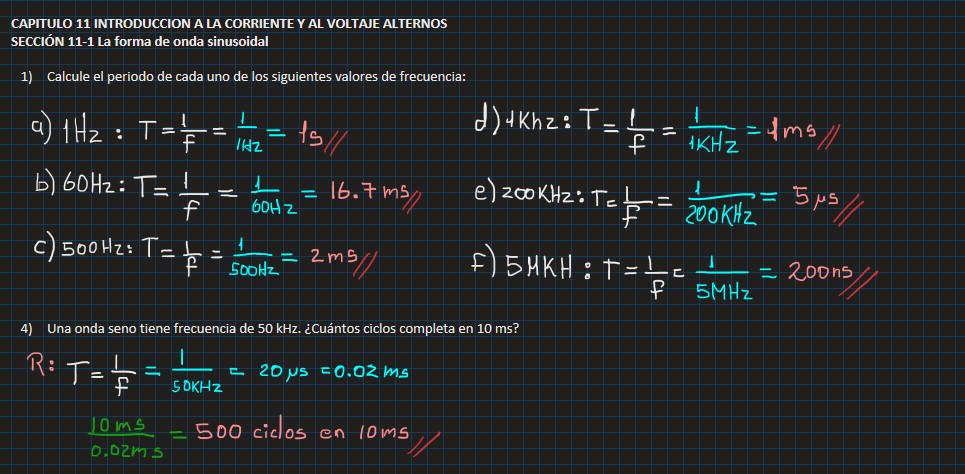 CAPITULO 11 INTRODUCCION A LA CORRIENTE Y AL VOLTAJE ALTERNOS
SECCIÓN 11-1 La forma de onda sinusoidal
1) Calcule el periodo de cada uno de los siguientes valores de frecuencia:
a) 1Hz : T = 1/f = 1/1Hz = 1s //
b) 60Hz : T = 1/f = 1/60Hz = 16.7 ms //
c) 500Hz : T = 1/f = 1/500Hz = 2ms //
d) 1Khz : T = 1/f = 1/1KHz = 1ms //
e) 200KHz : T = 1/f = 1/200KHz = 5 µs //
f) 5MKH : T = 1/f = 1/5MHz = 200ns //
4) Una onda seno tiene frecuencia de 50 kHz. ¿Cuántos ciclos completa en 10 ms?
R: T = 1/f = 1/50KHz = 20 µs = 0.02 ms
10ms/0.02ms = 500 ciclos en 10ms //